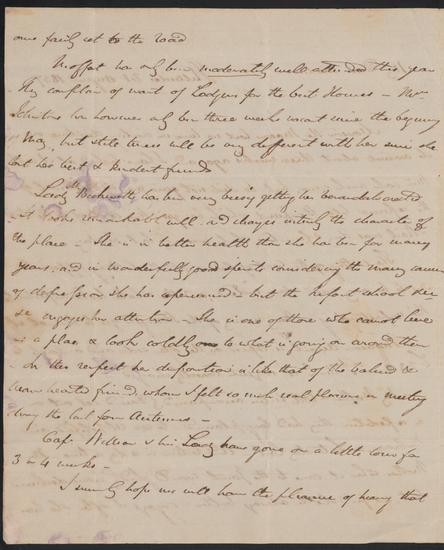 one fairly set to the road
Moffat has only been moderately well attended this year
They complain of want of Lodgers for the best Houses – Mrs
Johnstone has however only been three weeks vacant since the beginning
May, but still times will be very different with her since she
lost her best & kindest friends
Lady has been very busy getting her
It looks remarkably well and changes entirely the character of
the place – She is in better health than she has been for many
years, and in wonderfully good spirits considering the many causes
of depression she has experienced – but the school
engages her attention – She is one of those who cannot live
in a place & look coldly on to what is going on around them
In this respect her disposition is like that of the valued &
warm hearted friend, whom I felt so much real pleasure in meeting
during the last few Autumns –
Capt William & his Lady have gone on a little tour for
3 or 4 weeks –
I sincerely hope we will have the pleasure of hearing that